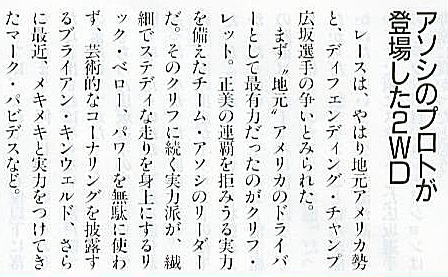 アソシのプロトが
登場した2WD
レースは、やはり地元アメリカ勢
と、ディフェンディング・チャンプ
広坂選手の争いとみられた。
まず〝地元〟アメリカのドライバ
ーとして最有力だったのがクリフ・
レット。正美の連覇を拒みうる実力
を備えたチーム・アソシのリーダー
だ。そのクリフに続く実力派が、繊
細でステディな走りを身上にするリ
ック・ベロー、パワーを無駄に使わ
ず、芸術的なコーナリングを披露す
るブライアン・キンウェルド、さら
に最近、メキメキと実力をつけてき
たマーク・パビデスなど。